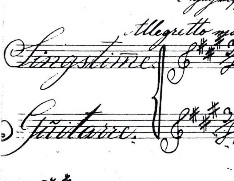 Allegretto
Singstim̄e.
Guitarre.